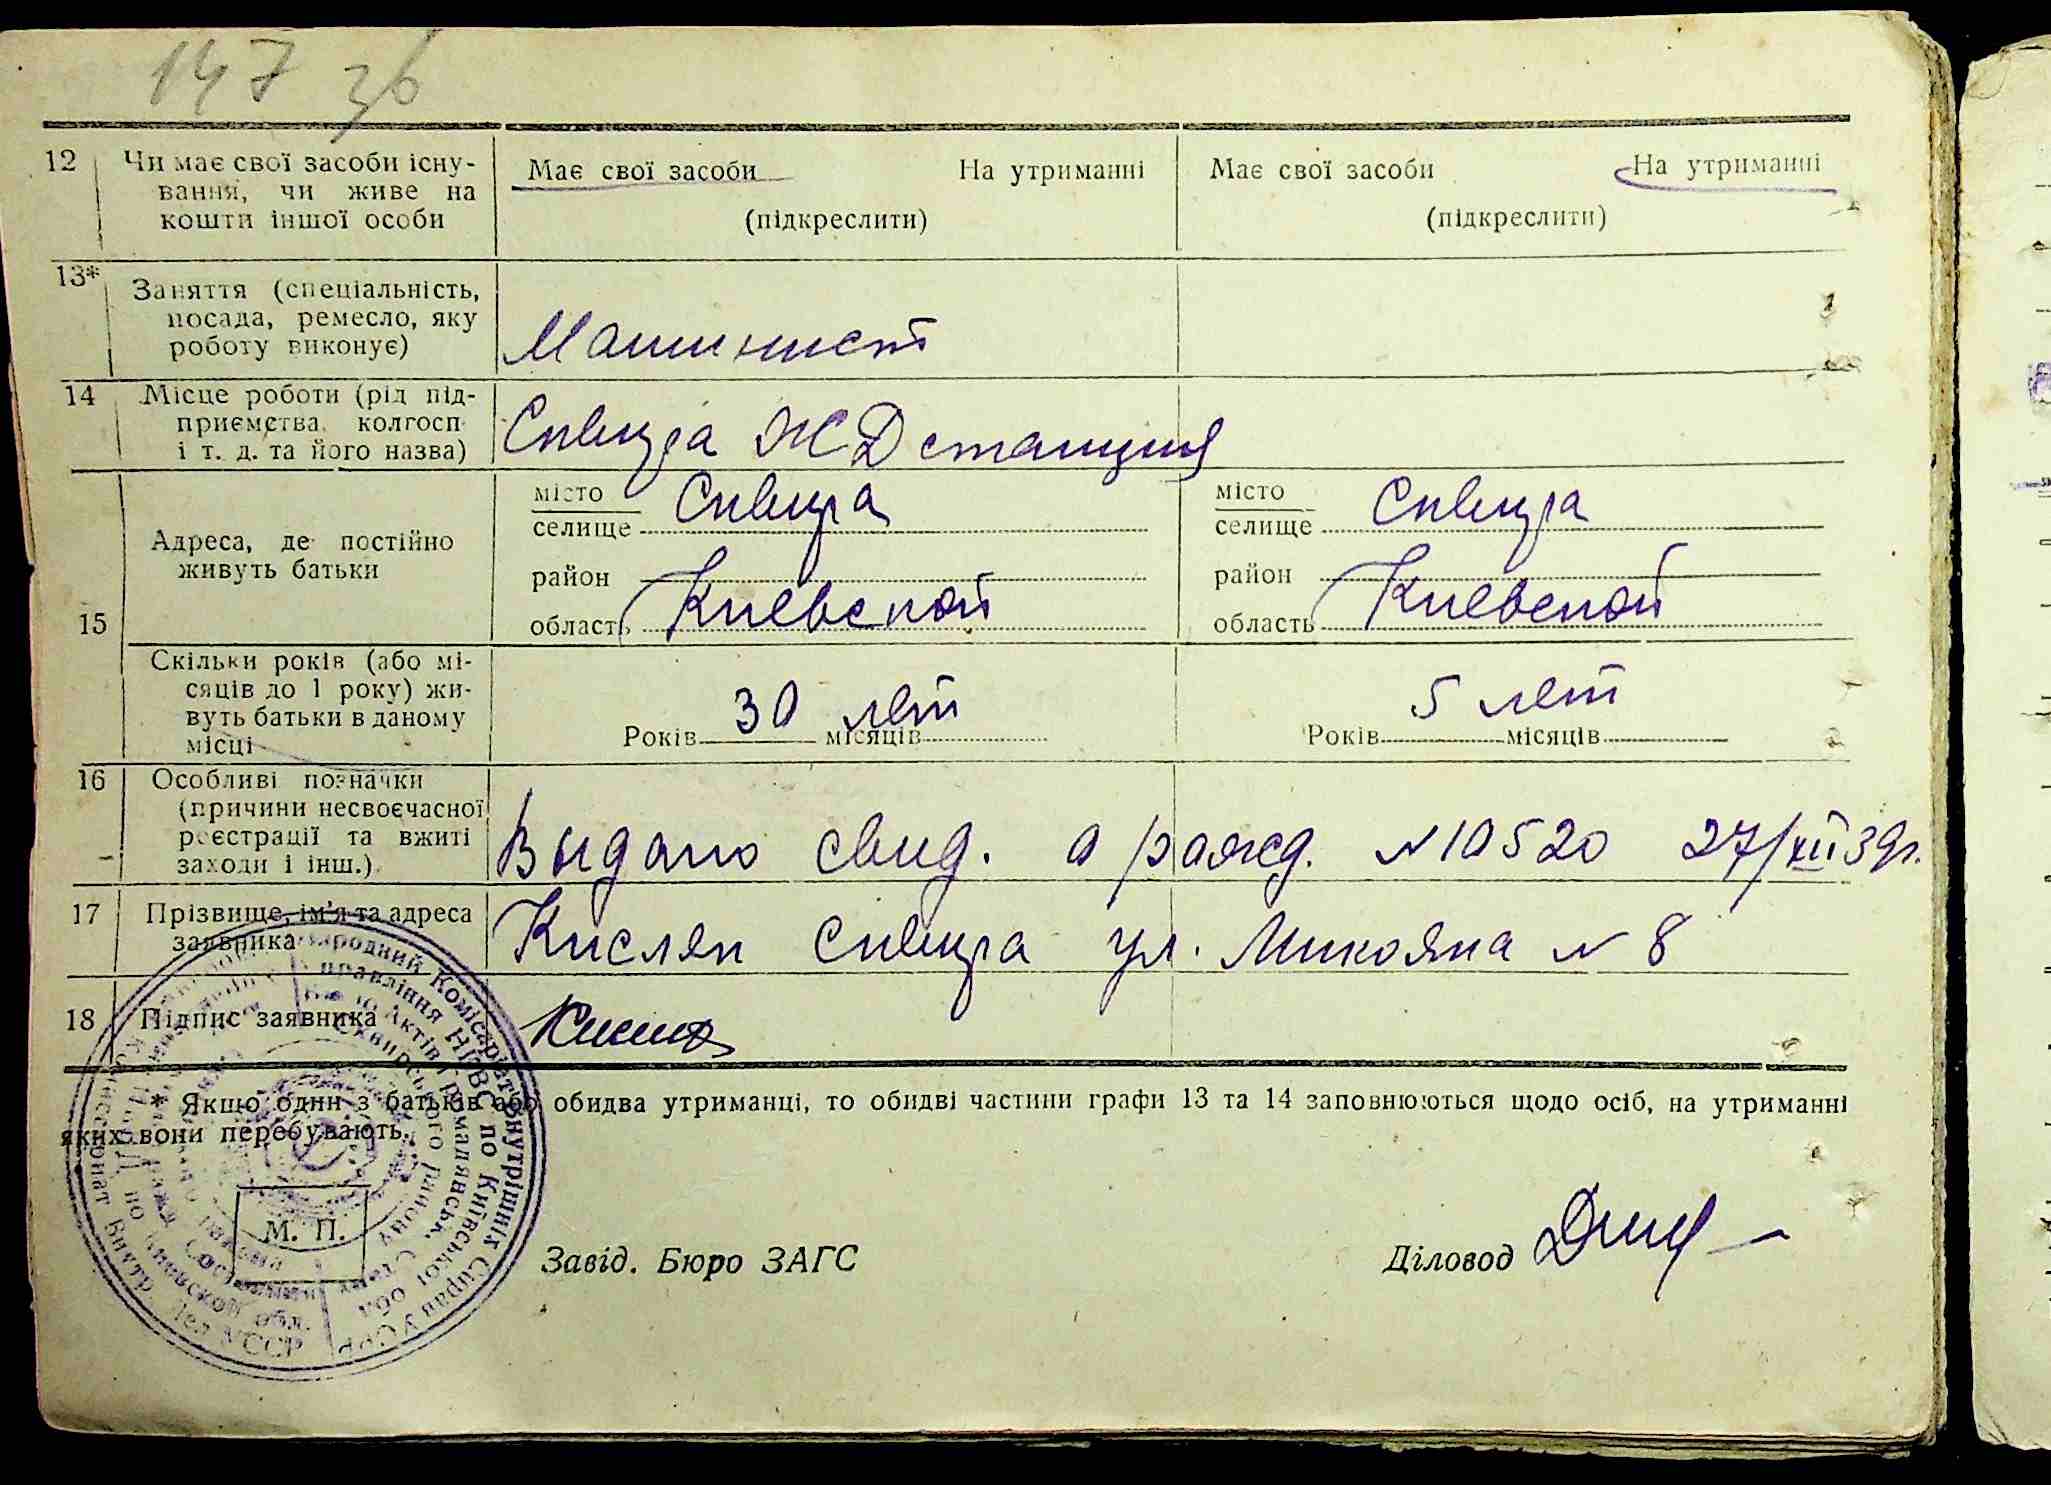 147 зб
12 Чи має свої засоби існу-
вання, чи живе на
кошти іншої особи
Має свої засоби На утриманні
(підкреслити)
Має свої засоби На утриманні
(підкреслити)
13* Заняття (спеціальність,
посада, ремесло, яку
роботу виконує)
Машинист
14 Місце роботи (рід під-
приємства, колгосп
і т. д. та його назва)
Сквира ЖД станция
15
Адреса, де постійно
живуть батьки
місто
селище Сквира
район
область Киевской
місто
селище Сквира
район
область Киевской
Скільки років (або мі-
сяців до 1 року) жи-
вуть батьки в даному
місці
30 лет
Років місяців
5 лет
Років місяців
16 Особливі позначки
(причини несвоєчасної
реєстрації та вжиті
заходи і інш.)
Выдано свид. о рожд. №10520 27/XII 39г.
17 Прізвище, ім'я та адреса
заявника
Кисляк Сквира ул. Микояна № 8
18 Підпис заявника
* Якщо один з батьків або обидва утриманці, то обидві частини графи 13 та 14 заповнюються щодо осіб, на утриманні
яких вони перебувають.
М. П.
Завід. Бюро ЗАГС
Діловод
Народний Комісаріат Внутрішніх Справ УСРР
Управління НКВС по Київській обл.
Бюро Актів Громадянськ. Стану
Сквирського району
Комиссариат Внутр. Дел УССР
по Киевской обл.